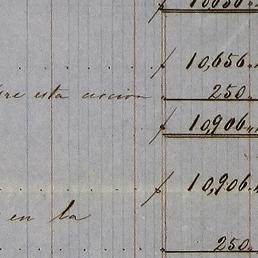 10,656
esta accion 250
10,906
10,906
en la
250